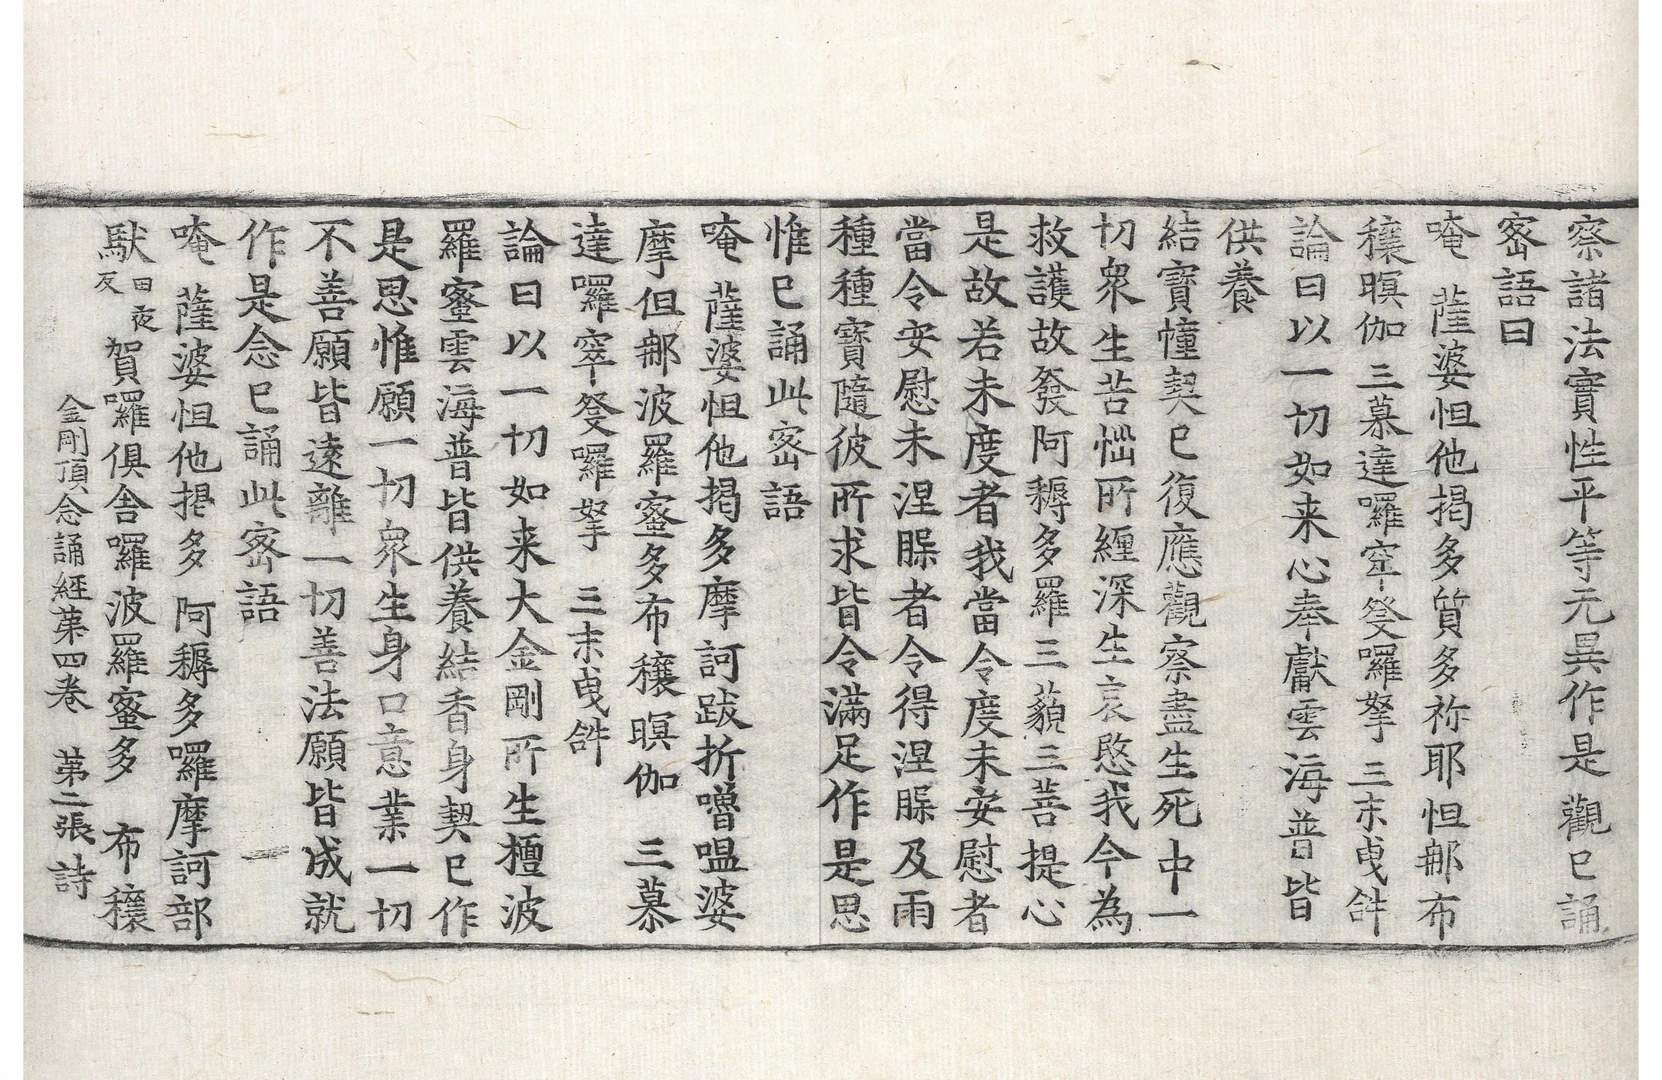 察諸法實性平等元異作是觀已誦
密語曰
唵 薩婆怛他揭多質多祢耶怛那布
穰暝伽 三慕達囉窣發囉拏 三末曳𤙖
論曰以一切如来心奉獻雲海普皆
供養
結寶幢契已復應觀察盡生死中一
切衆生苦惱所纏深生哀愍我今為
救護故發阿耨多羅三藐三菩提心
是故若未度者我當令度未安慰者
當令安慰未涅槃者令得涅槃及雨
種種寶隨彼所求皆令滿足作是思
惟已誦此密語
唵 薩婆怛他揭多摩訶跋折嚕嗢婆
摩但那波羅蜜多布穰暝伽 三慕
達囉窣發囉拏 三末曳𤙖
論曰以一切如来大金剛所生檀波
羅蜜雲海普皆供養結香身契已作
是思惟願一切衆生身口意業一切
不善願皆遠離一切善法願皆成就
作是念已誦此密語
唵 薩婆怛他揭多 阿耨多囉摩訶部
馱田夜反賀囉俱舍囉波羅蜜多 布穰
金剛頂念誦經第四卷 第二張 詩